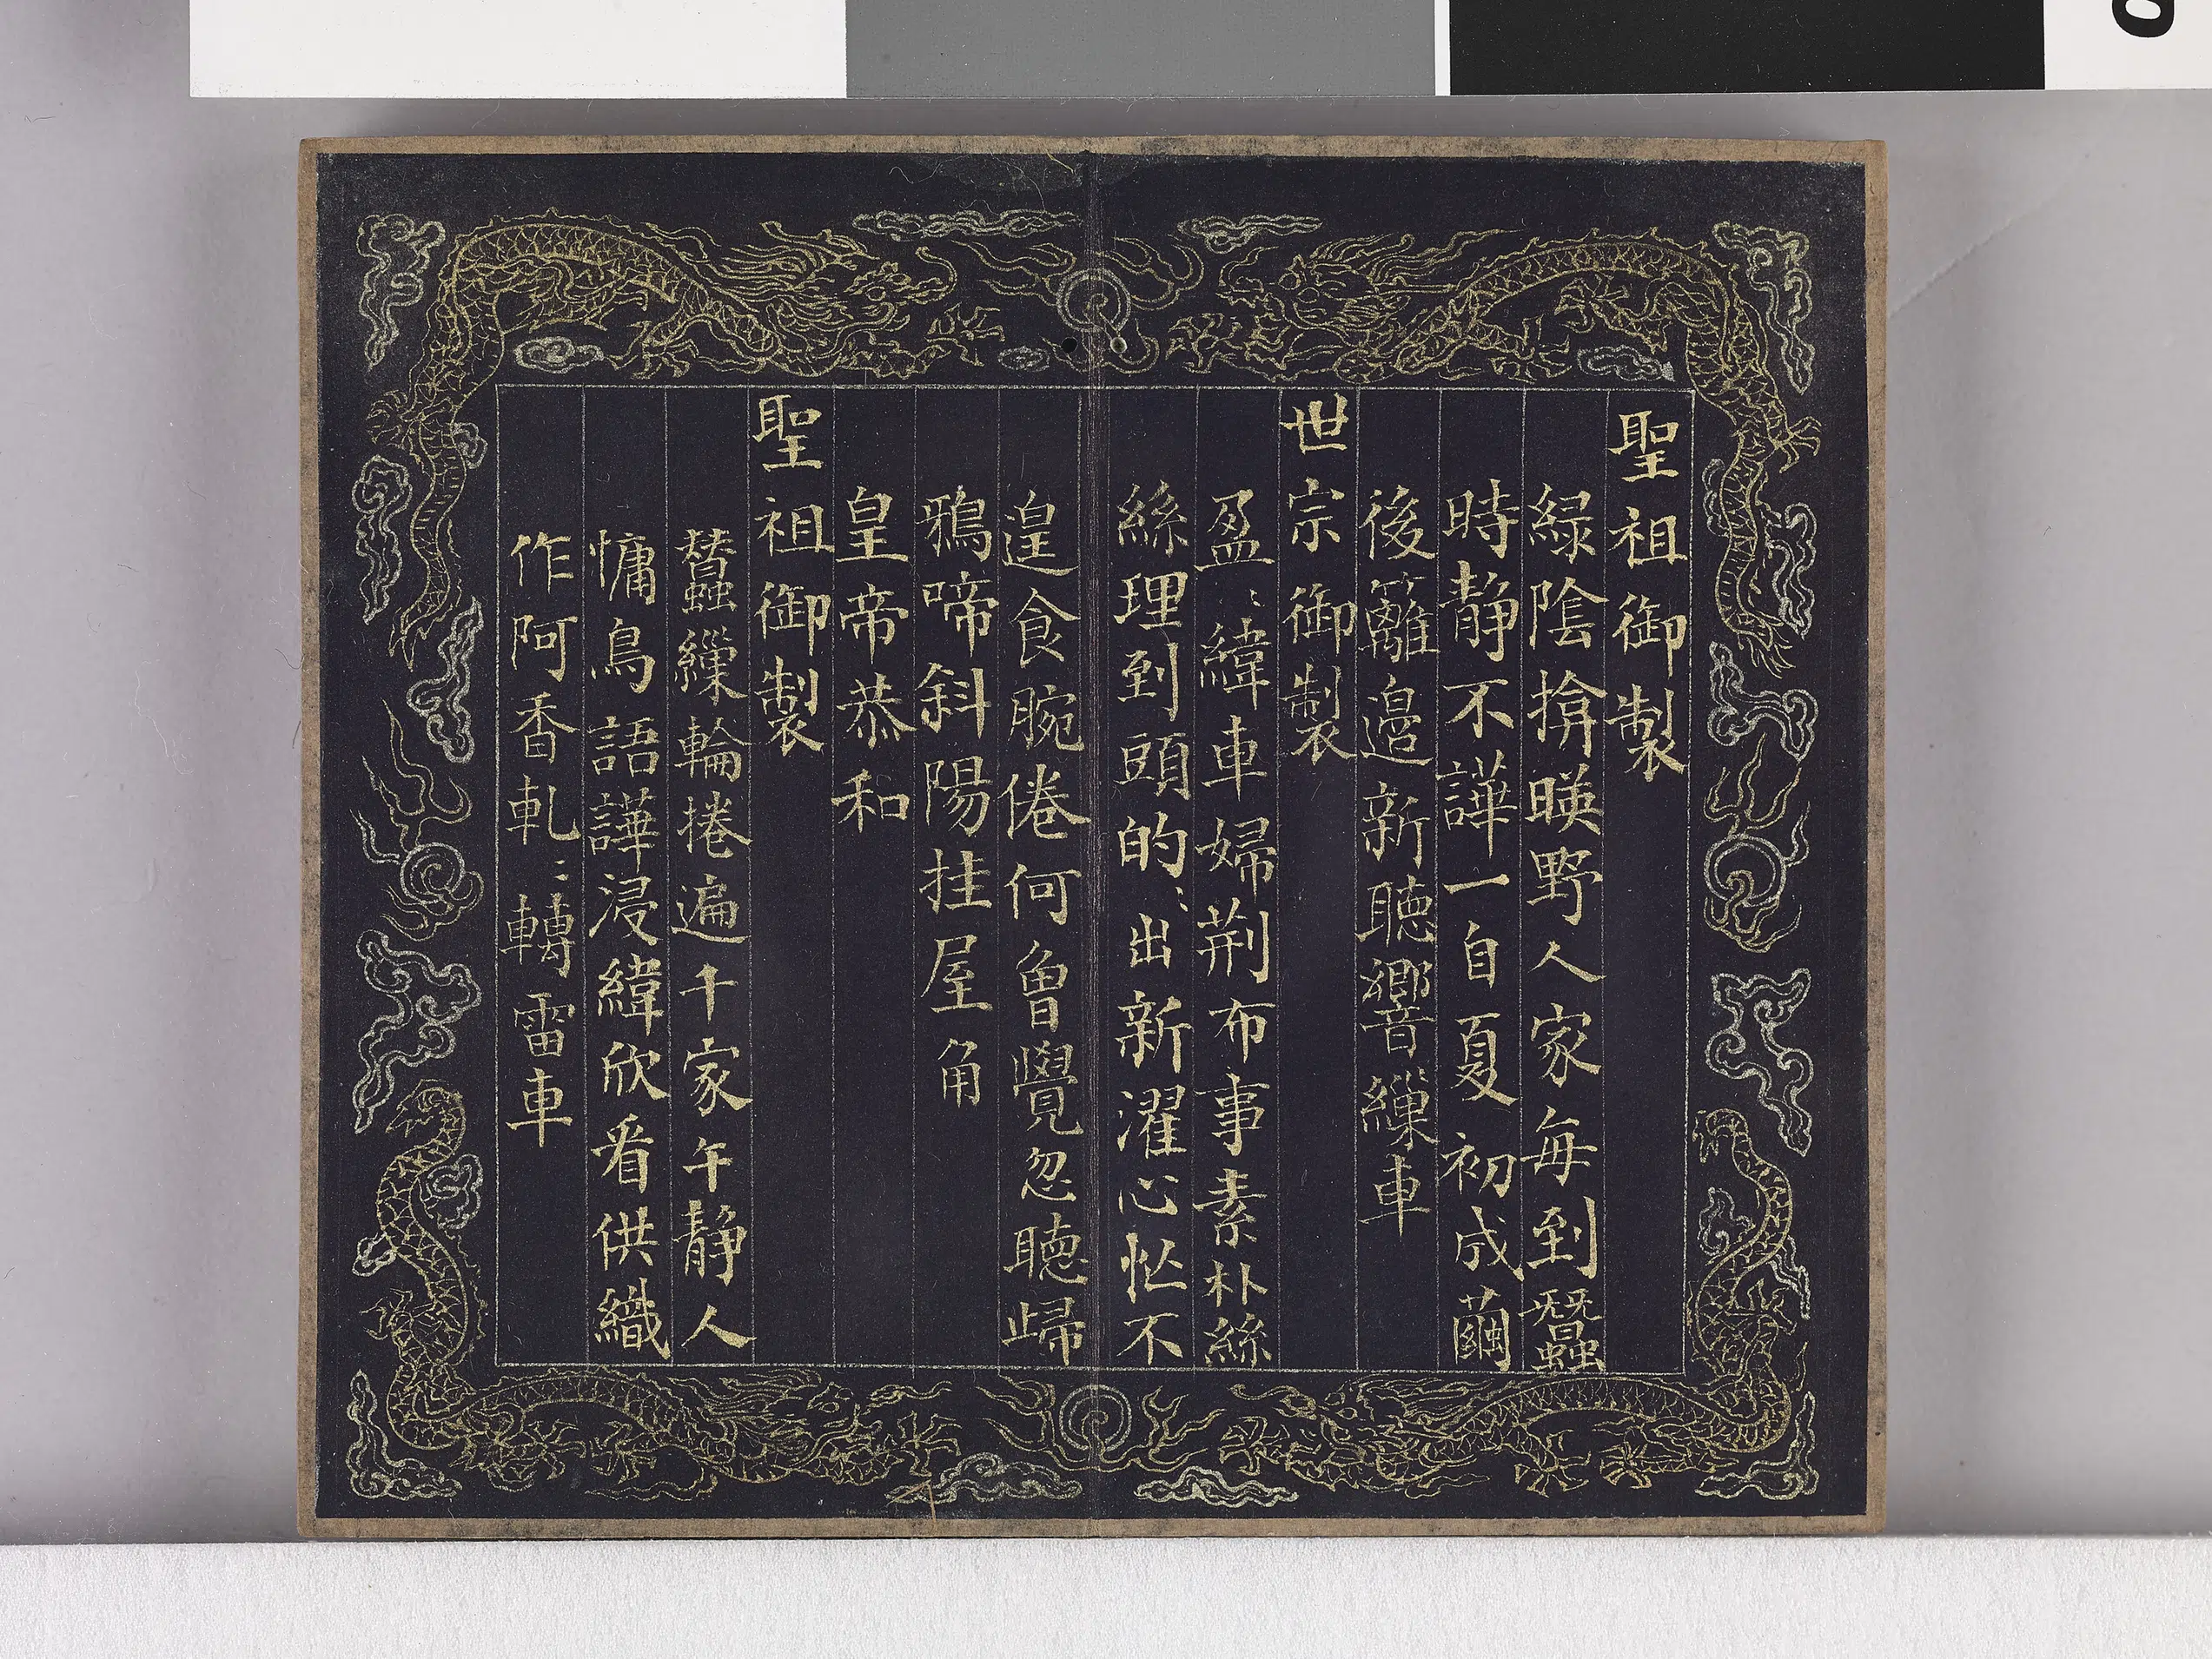 聖祖御製
緑陰揜暎野人家毎到蠶
時静不譁一自夏初成繭
後籬邉新聽響繅車
世宗御製
盈〻緯車婦荆布事素朴絲
絲理到頭的〻出新濯心忙不
遑食腕倦何曽覺忽聽歸
鴉啼斜陽挂屋角
皇帝恭和
聖祖御製
蠶繅輪捲遍千家午静人
慵鳥語譁浸緯欣看供織
作阿香軋〻轉雷車